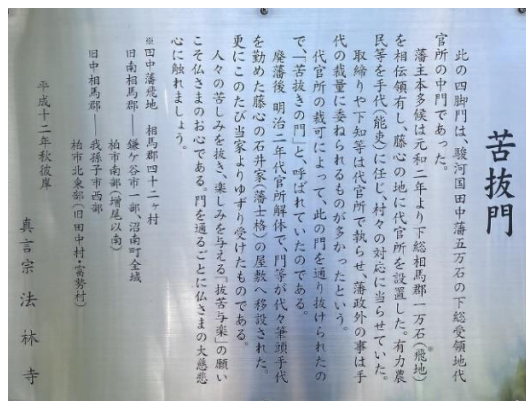 苦抜門
此の四脚門は、駿河国田中藩五万石の下総受領地代
官所の中門であった。
藩主本多候は元和二年より下総相馬郡一万石(飛地)※
を相伝領有し、藤心の地に代官所を設置した。有力農
民等を手代(能吏)に任じ、村々の対応に当らせていた。
取締りや下知等は代官所で執らせ、藩政外の事は手
代の裁量に委ねられるものが多かったという。
代官所の裁可によって、此の門を通り抜けられたの
で、「苦抜きの門」と、呼ばれていたのである。
廃藩後 明治二年代官所解体で、門等が代々筆頭手代
を勤めた藤心の石井家(藩士格)の屋敷へ移設された。
更にこのたび当家よりゆずり受けたものである。
人々の苦しみを抜き、楽しみを与える『抜苦与楽』の願い
こそ仏さまのお心である。門を通るごとに仏さまの大慈悲
心に触れましょう。
※田中藩飛地 相馬郡四十二ヶ村
旧南相馬郡――鎌ケ谷市一部、沼南町全域
柏市南部(増尾以南)
旧中相馬郡――我孫子市西部
柏市北東部(旧田中村・富勢村)
平成十二年秋彼岸
真言宗 法林寺